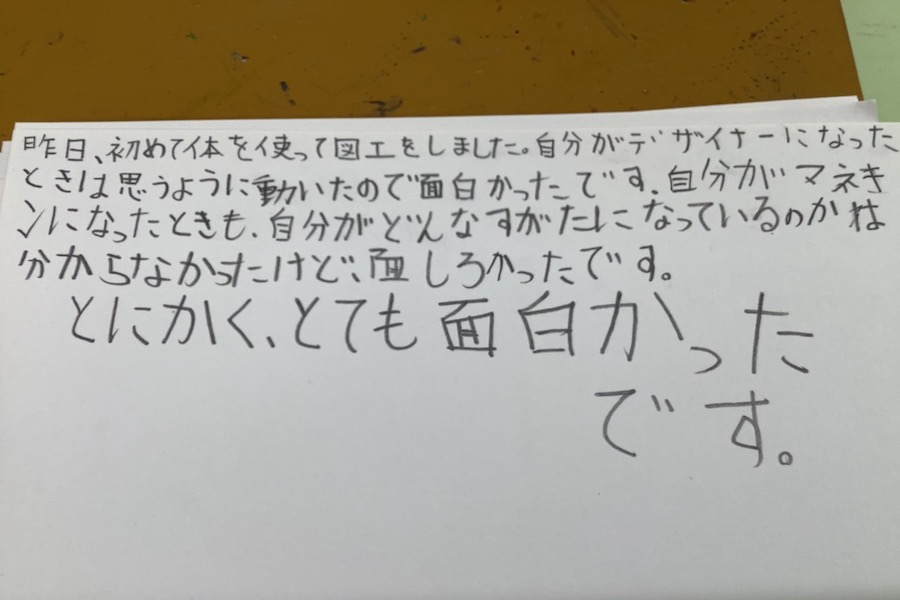 昨日、初めて体を使って図工をしました。自分がデザイナーになった
ときは思うように動いたので面白かったです。自分がマネキ
ンになったときも、自分がどんなすがたになっているのかは
分からなかったけど、面しろかったです。
とにかく、とても面白かった
です。